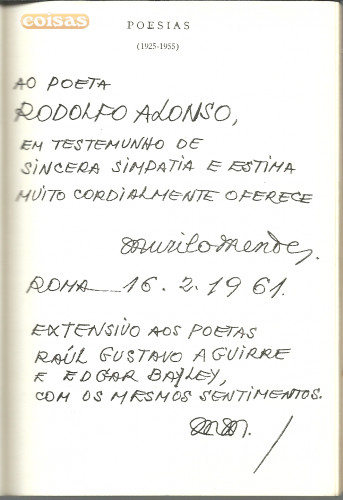 coisas
POESIAS
(1925-1955)
AO POETA
RODOLFO ALONSO,
EM TESTEMUNHO DE
SINCERA SIMPATIA E ESTIMA
MUITO CORDIALMENTE OFERECE
Murilo Mendes,
ROMA 16.2.1961.
EXTENSIVO AOS POETAS
RAÚL GUSTAVO AGUIRRE
E EDGAR BAYLEY,
COM OS MESMOS SENTIMENTOS.
MM.